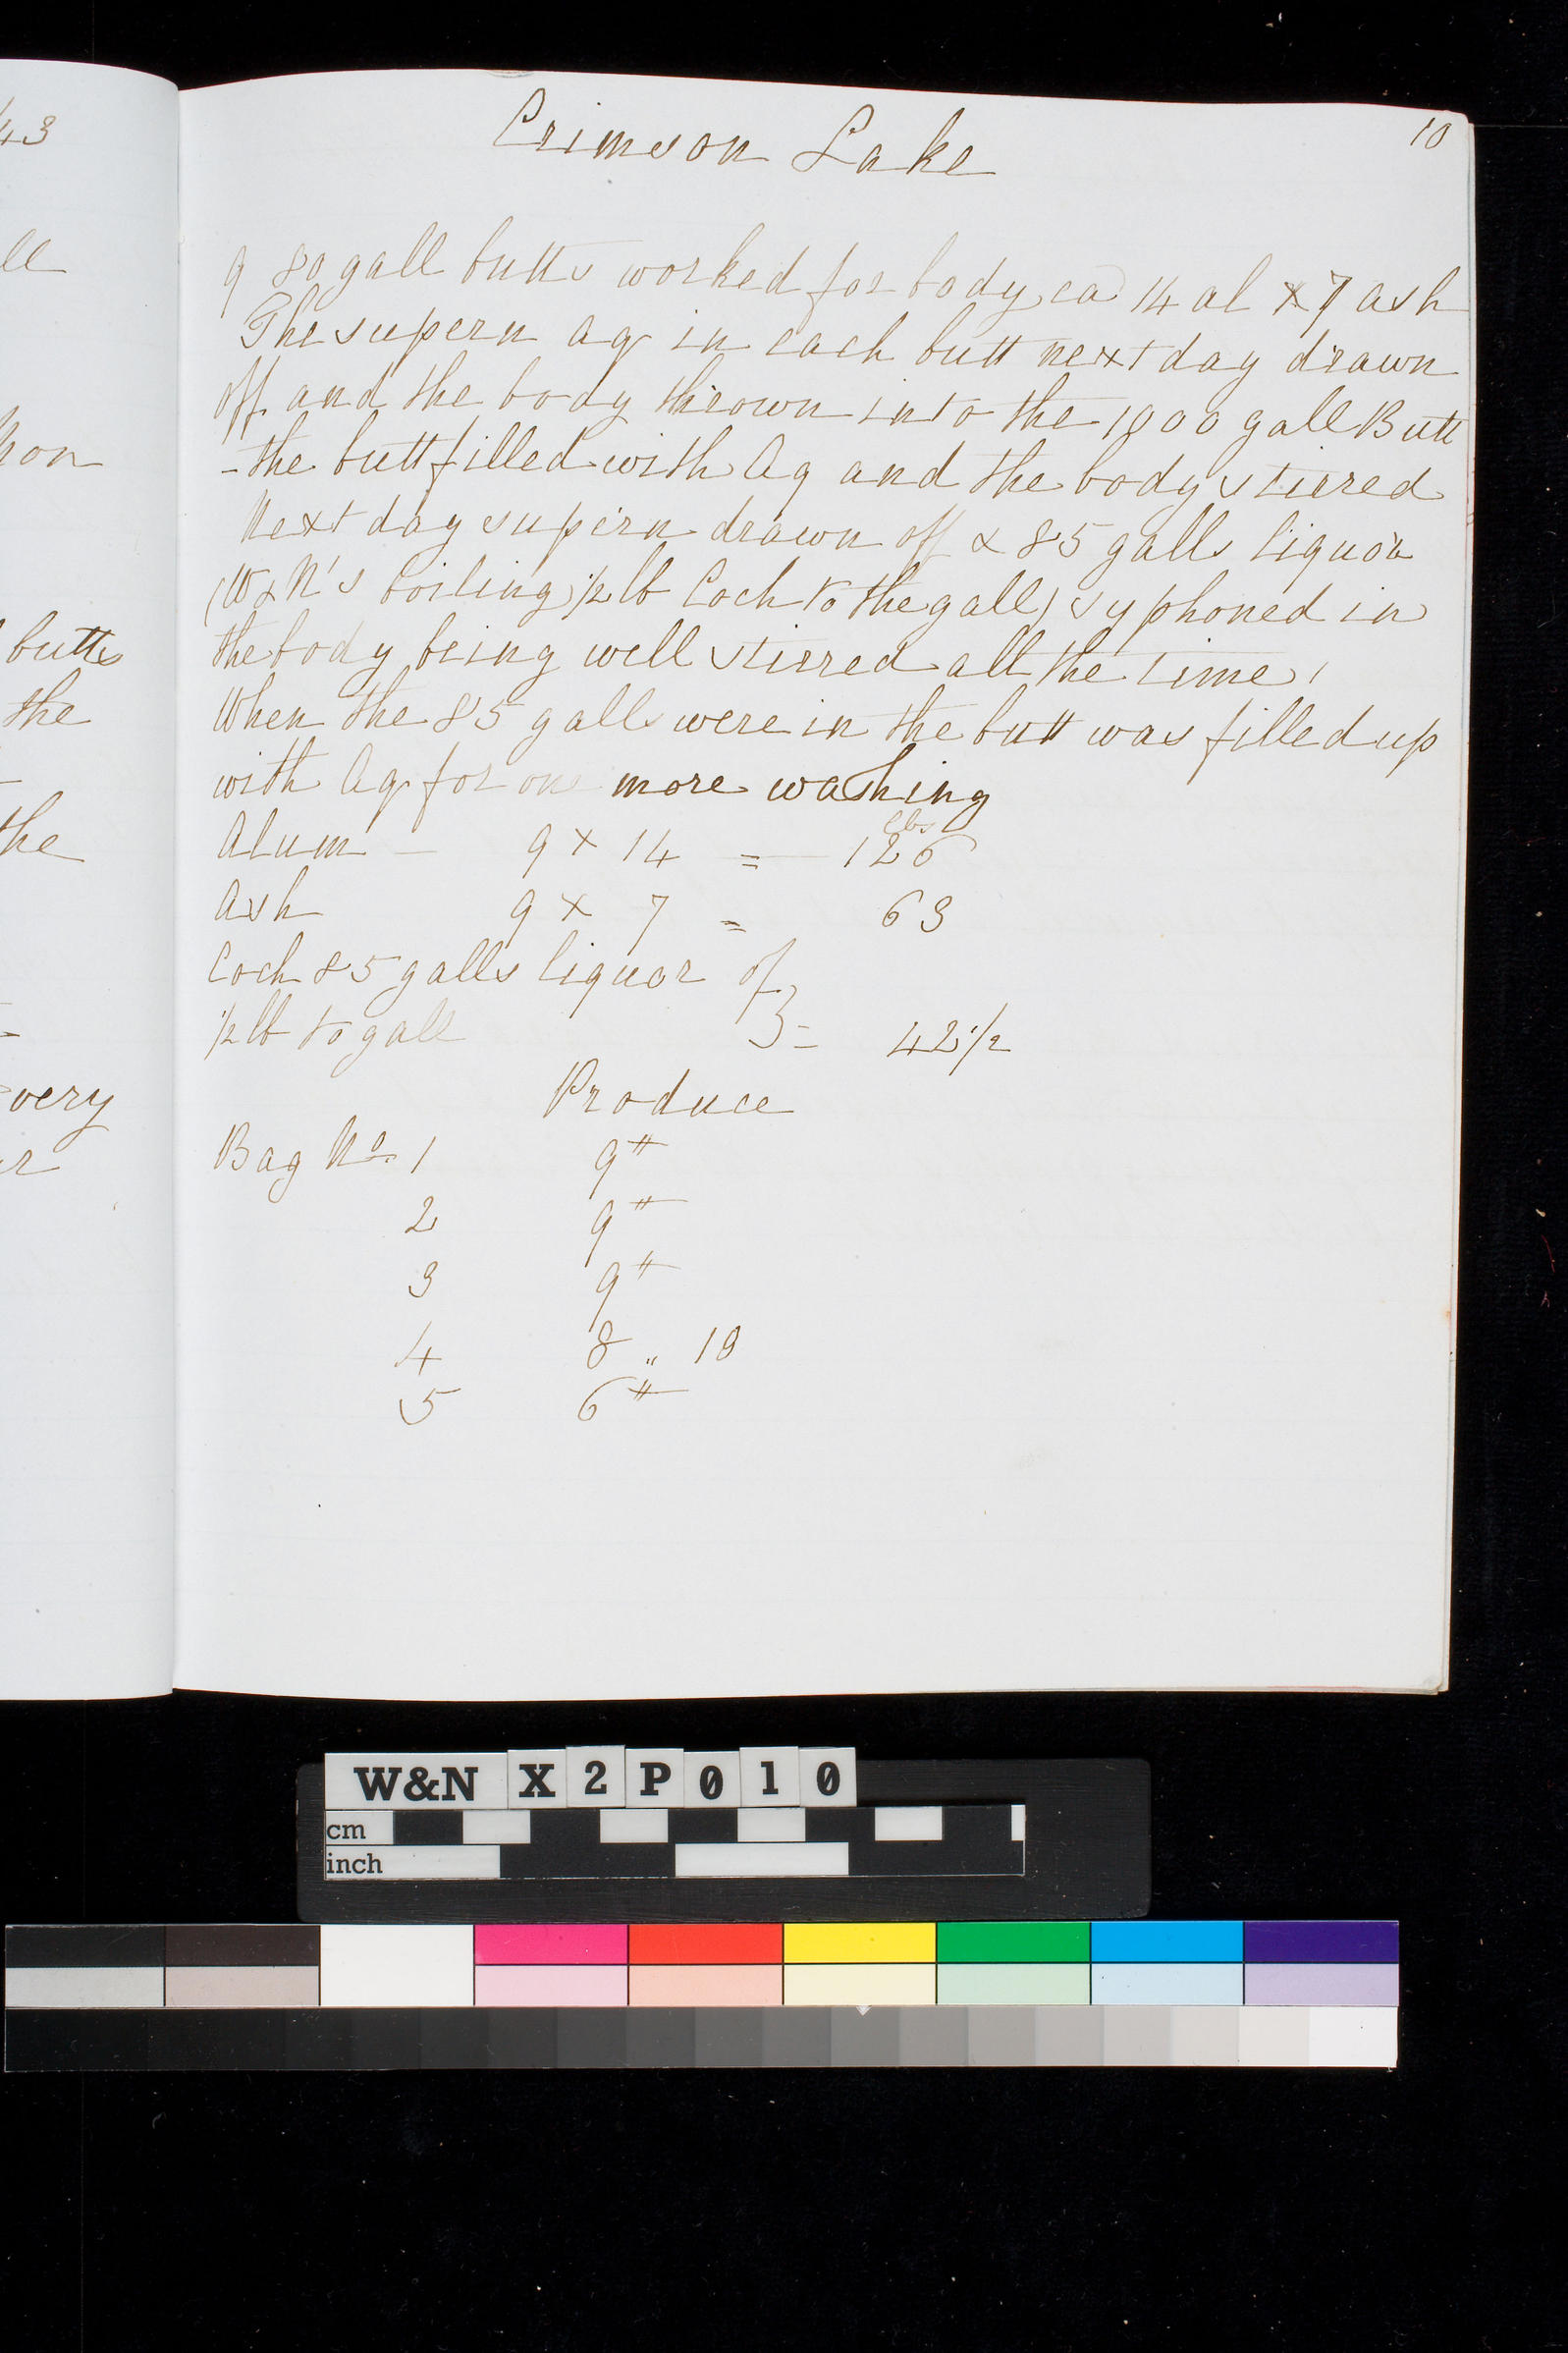 43
ll
butts
the
the
very
r
Crimson Lake
10
9 80 gall butts worked for body ea 14 al & 7 ash
The supern Aq in each butt next day drawn
off and the body thrown into the 1000 gall Butt
- the butt filled with Aq and the body stirred
Next day supern drawn off & 85 galls liquor
(W&N's boiling 1/2 lb Coch to the gall) syphoned in
the body being well stirred all the time,
When the 85 galls were in the butt was filled up
with Aq for one more washing
lbs
Alum - 9 x 14 = 126
Ash 9 x 7 = 63
Coch 85 galls liquor of }
1/2 lb to gall } = 42 1/2
Produce
Bag No. 1 9 "
2 9 "
3 9 "
4 8 " 10
5 6 "
W&N X2P010
cm
inch